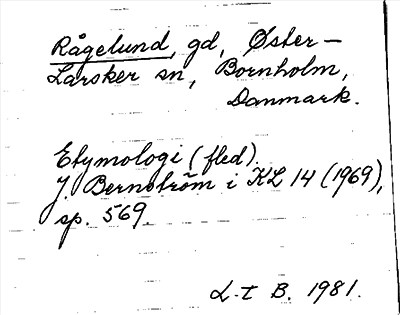 Rågelund, gd, Øster-
Larsker sn, Bornholm,
Danmark.
Etymologi (fled).
J. Bernström i KL 14 (1969),
sp. 569.
L-t B. 1981.